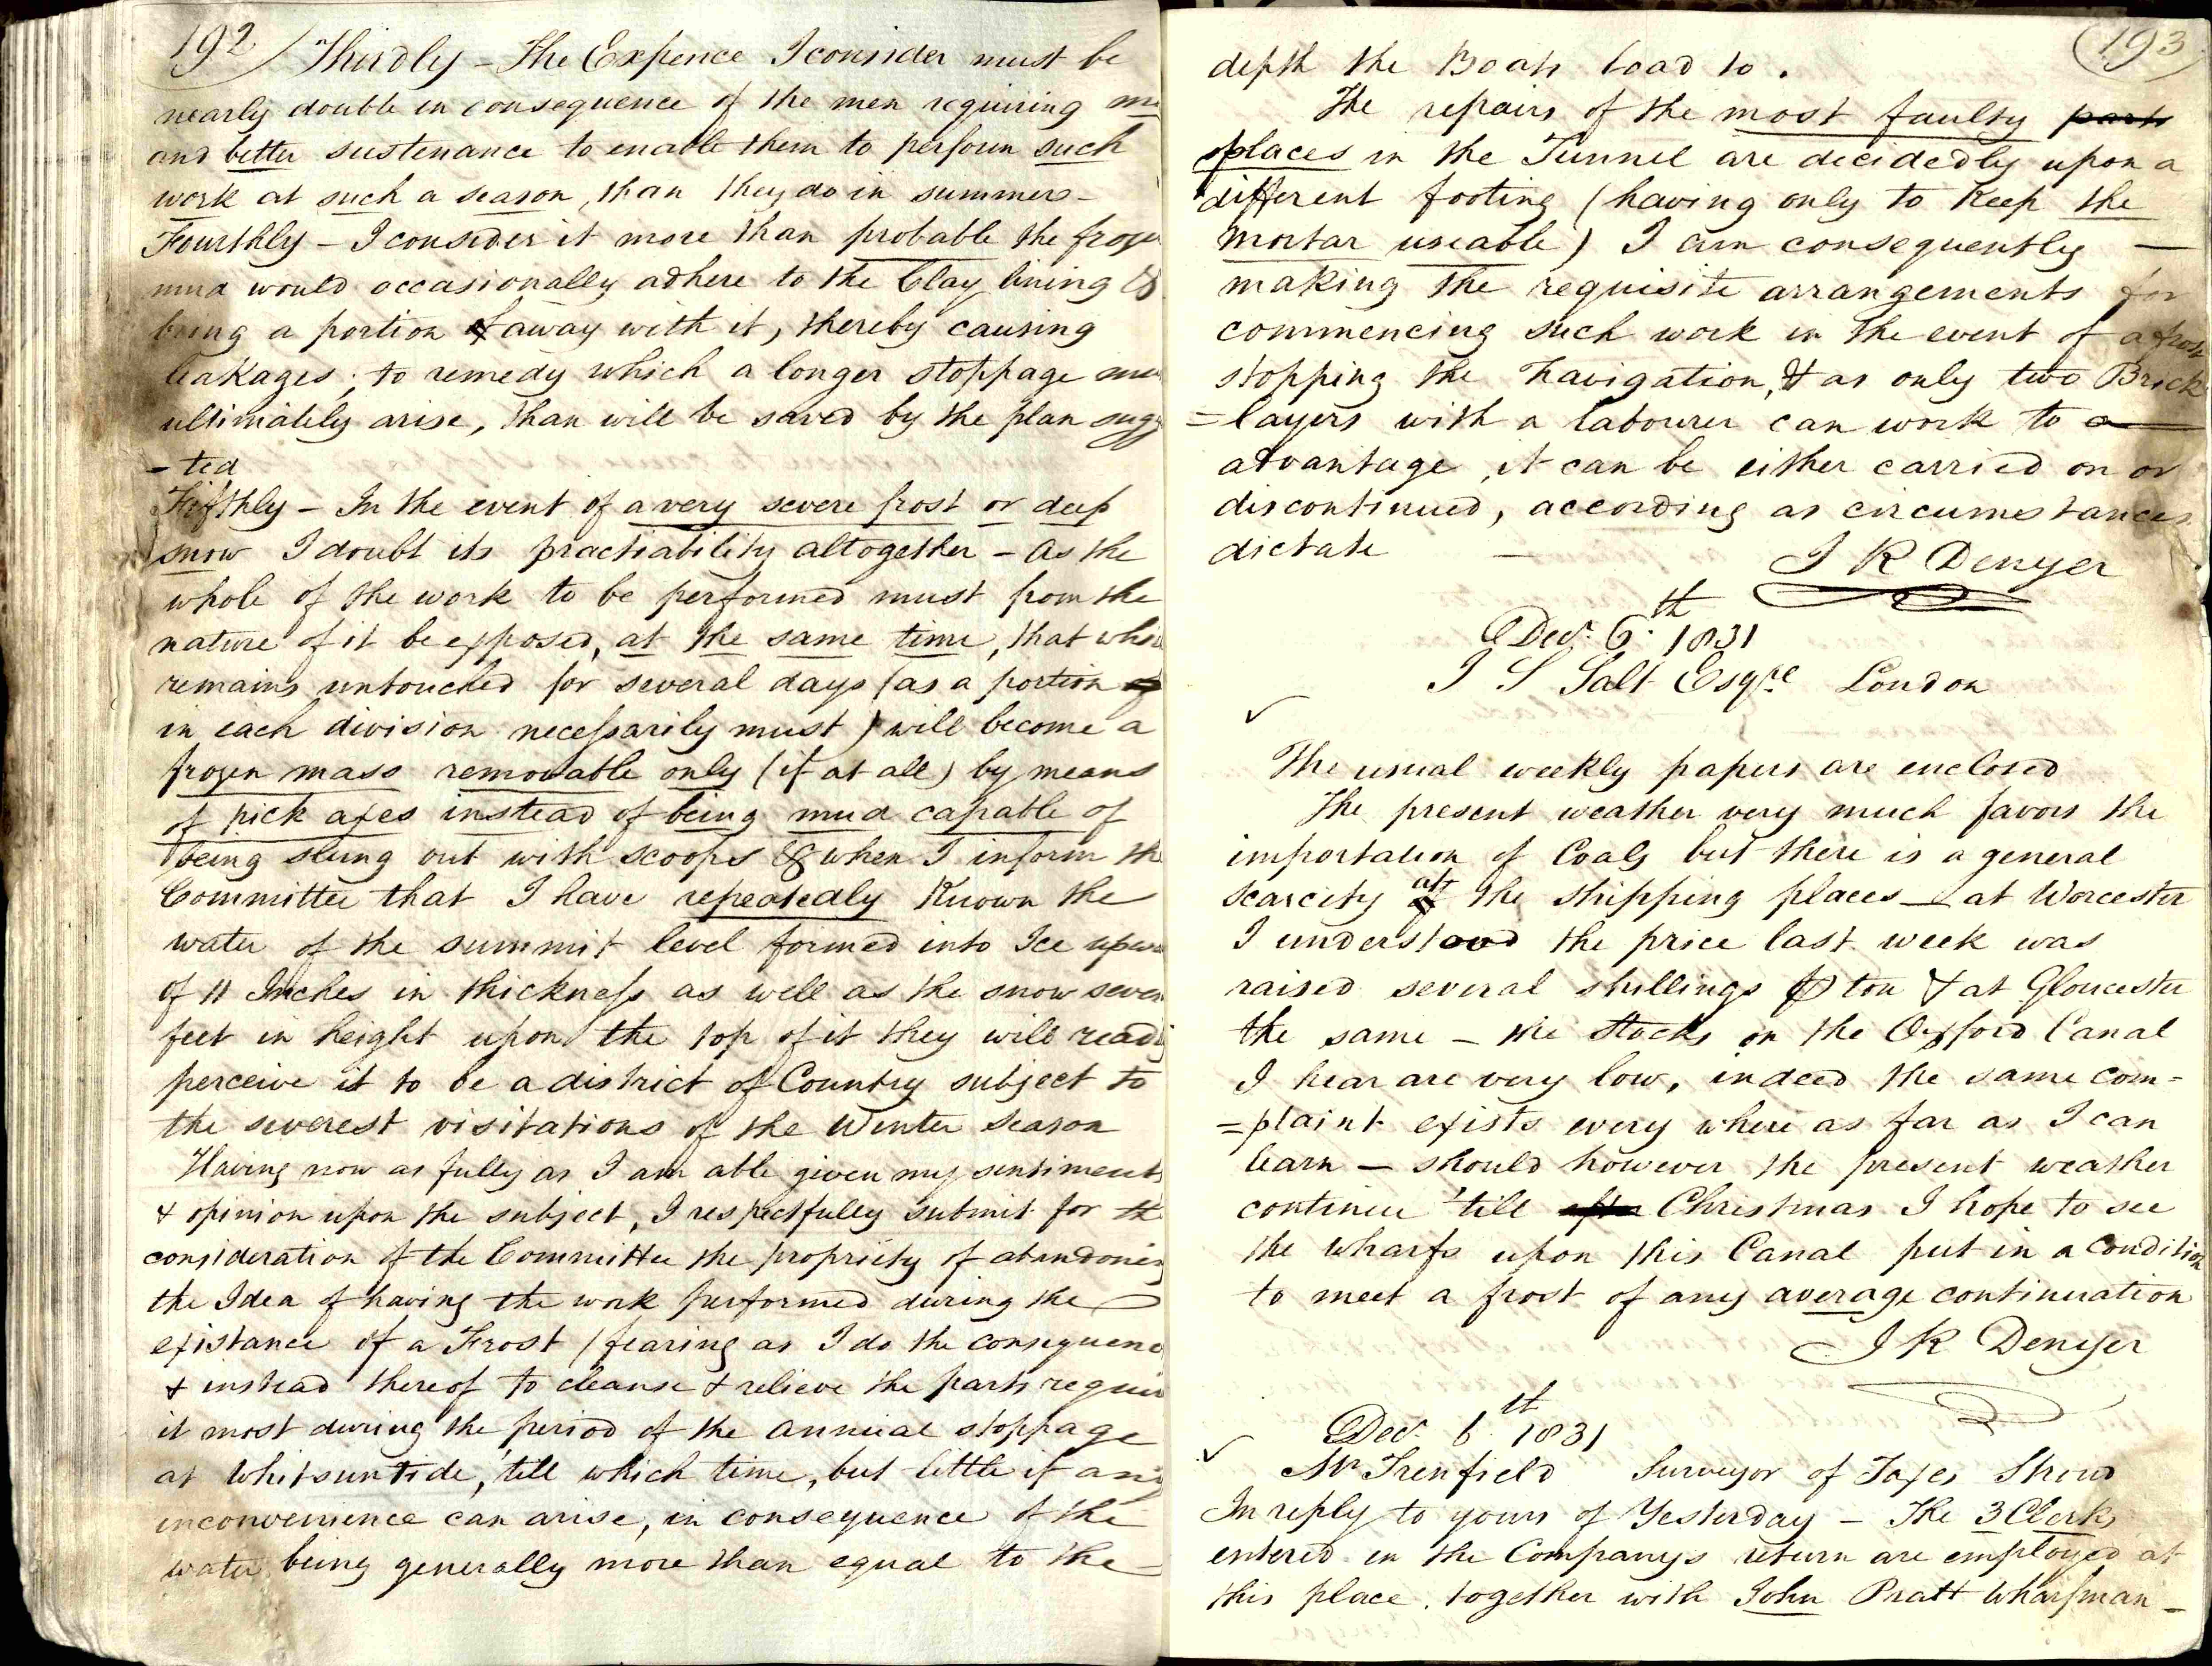 192
Thirdly - The Expence I consider must be
nearly double in consequence of the men requiring
and better sustenance to enable them to perform such
work at such a season, than they do in summers -
Fourthly - I consider it more than probable the froze
mud would occasionally adhere to the Clay lining &
bring a portion of away with it, thereby causing
leakages; to remedy which a longer stoppage
ultimately arise, than will be saved by the plan sugg
- ted
Fifthly - In the event of a very severe frost or deep
snow I doubt its practiability altogether - As the
whole of the work to be performed must from the
nature of it be exposed, at the same time, that whi
remains untouched for several days (as a portion of
in each division necessarily must) will become a
frozen mass removable only (if at all) by means
of pick axes instead of being mud capable of
being slung out with scoops & when I inform the
Committee that I have repeatedly Known the
water of the summit level formed into Ice upw
of 11 Inches in thickness as well as the snow seve
feet in height upon the top of it they will readi
perceive it to be a district of Country subject to
the severest visitations of the Winter Season
Having now as fully as I am able given my sentiments
& opinion upon the subject, I respectfully submit for th
consideration of the Committee the propriety of abandonin
the Idea of having the work performed during the
existance of a Frost (fearing as I do the consequenc
& instead thereof to cleanse & relieve the parts requir
it most during the period of the annual stoppage
at Whitsuntide, 'till which time, but little if any
inconvenience can arise, in consequence of the
water being generally more than equal to the
193
depth the Boats load to.
The repairs of the most faulty parts
places in the Tunnel are decidedly upon a
different footing (having only to Keep the
mortar useable) I am consequently -
making the requisite arrangements for
commencing such work in the event of a frost
stopping the Navigation, & as only two Brick
=layers with a labourer can work to a
advantage, it can be either carried on or
discontinued, according as circumstances
dictate -
J R Denyer
Decr. 6th. 1831
J S Salt Esqre London
✓
The usual weekly papers are enclosed
The present weather very much favors the
importation of Coals but there is a general
scarcity at the shipping places - at Worcester
I understood the price last week was
raised several shillings ⅌ ton & at Gloucester
the same - the Stocks on the Oxford Canal
I hear are very low, indeed the same com-
=plaint exists every where as far as I can
learn - should however the present weather
continue 'till after Christmas I hope to see
the wharfs upon this Canal put in a condition
to meet a frost of any average continuation
J R Denyer
Decr. 6th. 1831
✓ Mr Trenfield Surveyor of Taxes Stroud
In reply to yours of Yesterday - The 3 Clerks
entered in the Companys return are employed at
this place, together with John Pratt Wharfman -